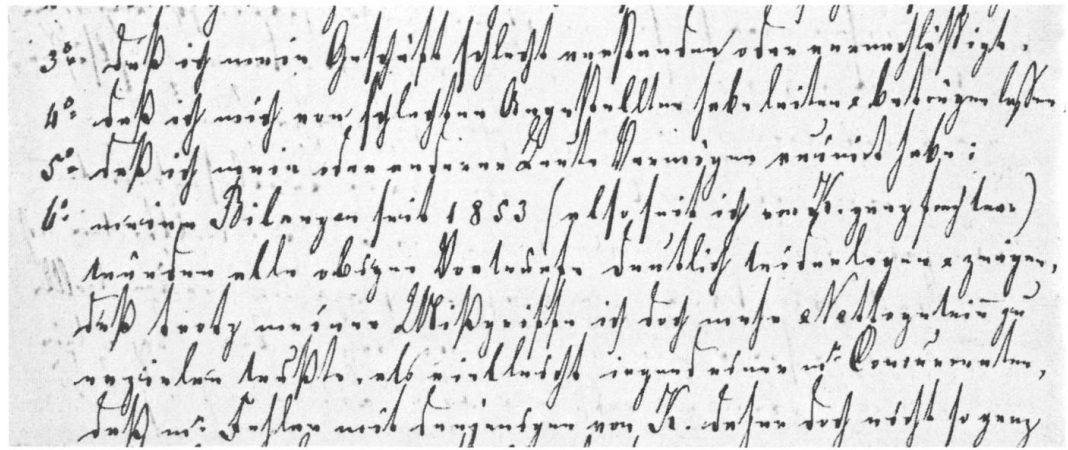 3° daß ich mein Geschäft schlecht verstanden oder vernachläßigt.
4° daß ich mich von schlechten Angestellten habe leiten & betrügen lassen,
5° daß ich mein oder anderer Leute Vermögen ruinirt habe;
6° meine Bilanzen seit 1853 (also seit ich von K. ganz fort war)
würden alle obigen Vorwürfe deutlich widerlegen & zeigen,
daß trotz meiner Mißgriffe ich doch mehr Nettogewinn zu
erzielen wußte, als vielleicht irgend einer m. Concurrenten,
daß m. Fehler mit denjenigen von K. daher doch nicht so ganz